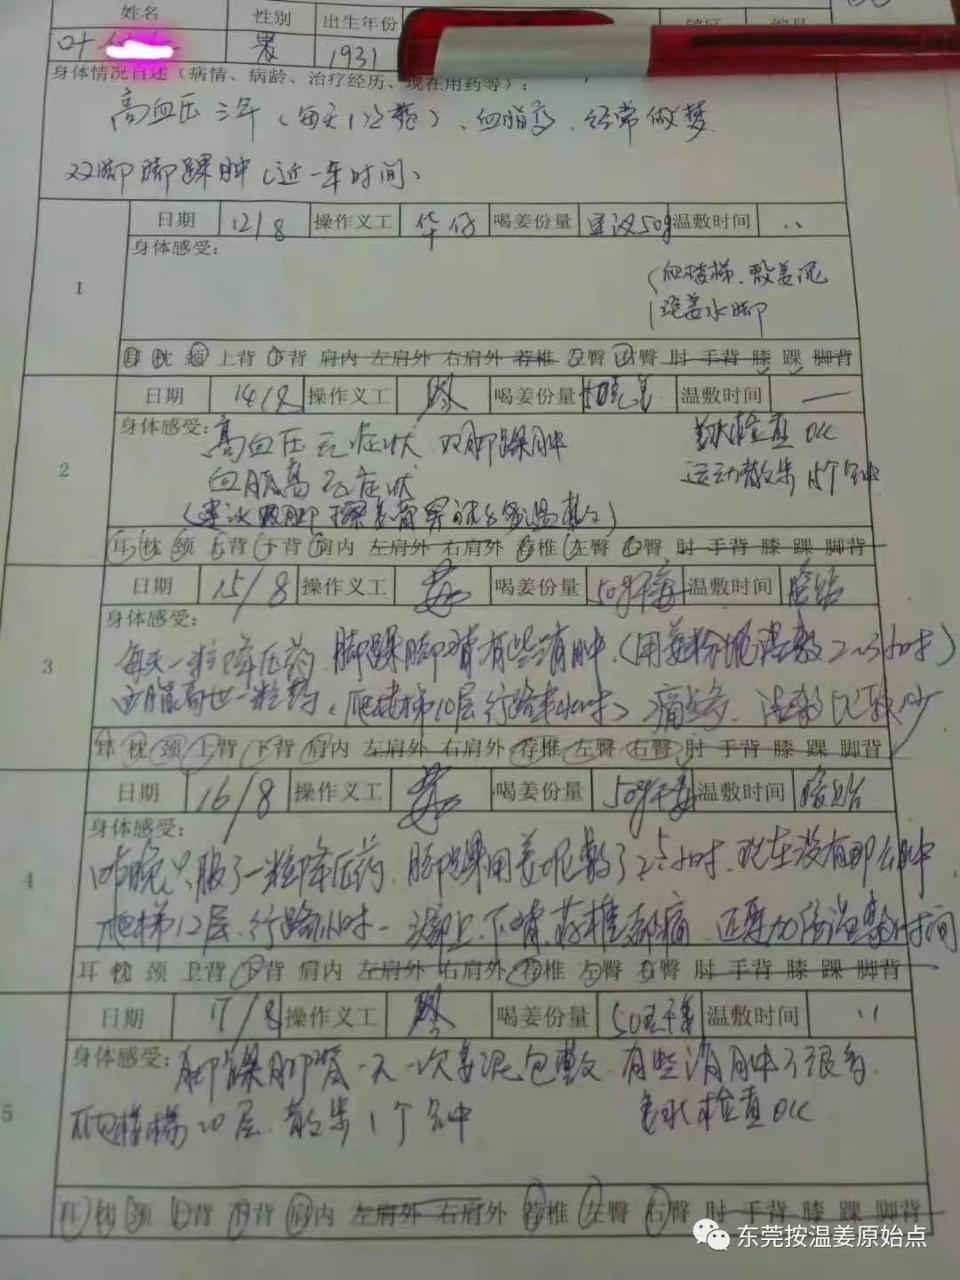 姓名 性别 出生年份
叶 男 1931
身体情况自述（病情、病龄、治疗经历、现在用药等）：
高血压三年（每天1次药）、血脂高、经常做梦
双脚脚踝肿（近一年时间）
日期 12/8 操作义工 华仔 喝姜份量 建议50g 温敷时间
身体感受：
爬楼梯、敷姜泥
泡姜水脚
1
耳 枕 颈 上背 下背 肩内 左肩外 右肩外 荐椎 左臀 右臀 肘 手背 膝 踝 脚背
日期 14/8 操作义工 喝姜份量 温敷时间 一
身体感受：高血压无症状 双脚踝肿 姜水检查OK
血脂高无症状 运动散步
2
耳 枕 颈 上背 下背 肩内 左肩外 右肩外 荐椎 左臀 右臀 肘 手背 膝 踝 脚背
日期 15/8 操作义工 喝姜份量 50g干姜 温敷时间
身体感受：
每天一粒降压药，脚踝脚背有些消肿（用姜粉泥温敷2~3小时）
血脂高也一粒药（爬楼梯10层行路半小时）痛点多、温敷比较少
3
耳 枕 颈 上背 下背 肩内 左肩外 右肩外 荐椎 左臀 右臀 肘 手背 膝 踝 脚背
日期 16/8 操作义工 喝姜份量 50g干姜 温敷时间
身体感受：
昨晚只服了一粒降压药，脚踝用姜泥敷了2.5小时，现在没有那么肿
爬梯12层，行路1小时 下背，荐椎都痛，还要加强温敷时间
4
耳 枕 颈 上背 下背 肩内 左肩外 右肩外 荐椎 左臀 右臀 肘 手背 膝 踝 脚背
日期 17/8 操作义工 喝姜份量 50克干姜 温敷时间
身体感受：脚踝脚背一天一次姜泥包敷，有些消肿了很多，
爬楼梯20层、散步1个钟 姜水检查OK
5
耳 枕 颈 上背 下背 肩内 左肩外 右肩外 荐椎 左臀 右臀 肘 手背 膝 踝 脚背
东莞按温姜原始点